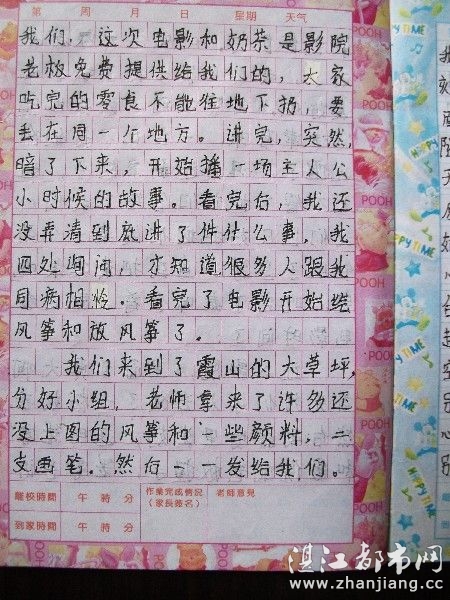 第 周 月 日 星期 天气
我们,这次电影和奶茶是影院
老板免费提供给我们的,大家
吃完的零食不能往地下扔,要
丢在同一个地方。讲完,突然,
暗了下来,开始播一场主人公
小时候的故事。看完后,我还
没弄清到底讲了件什么事,我
四处询问,才知道很多人跟我
同病相怜。看完了电影开始绘
风筝和放风筝了。
我们来到了霞山的大草坪,
分好小组,老师拿来了许多还
没上图的风筝和一些颜料,二
支画笔。然后一一发给我们。
離校時間 午 時 分 作業完成情況 老師意見
(家長簽名)
到家時間 午 時 分
POOH
POOH
POOH
POOH
HAPPY TIME
HAPPY TIME
湛江都市网
www.zhanjiang.cc